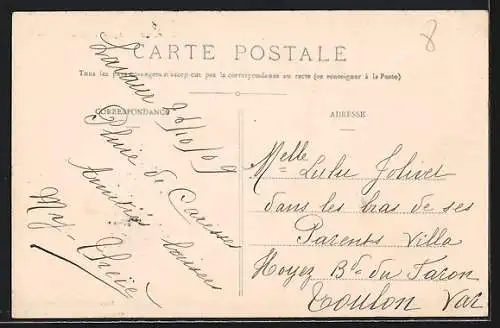 8
CARTE POSTALE
Tous les pays étrangers n'acceptent pas la correspondance au recto (se renseigner à la Poste)
CORRESPONDANCE
ADRESSE
Lavaur 26/10/09
Pluie de Caresses
Amitiés baisers
Melle Lulu Jolivet
dans les bras de ses
Parents Villa
Noyez Bd du Faron
Toulon Var